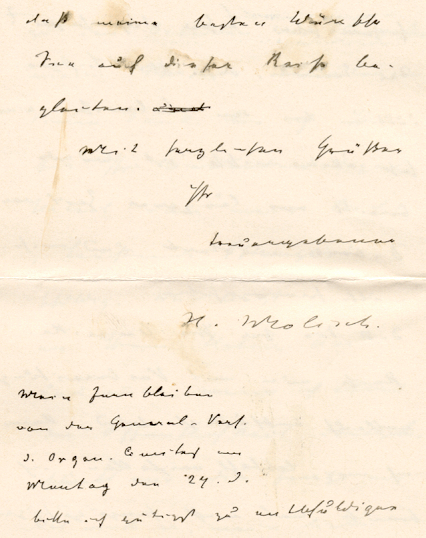 daß meine besten Wünsche
Sie auf dieser Reise be-
gleiten.
Mit herzlichen Grüßen
Ihr
treuergebener
H. Molisch.
Mein Fernbleiben
von der General-Vers.
d. Organ. Comites am
Montag den 24. d.
bitte ich gütigst zu entschuldigen